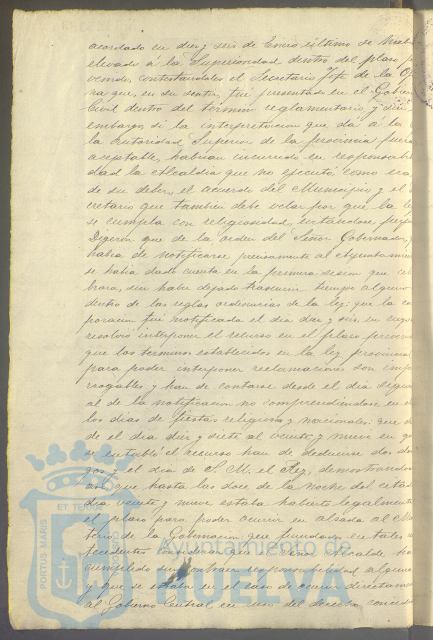 acordado en diez y seis de Enero último se había
elevado á la Superioridad dentro del plazo
contestándoles el Secretario Jefe de la
que, en su sentir, fué presentado en el Gobierno
Civil dentro del término reglamentario, y sin
embargo si la interpretación que dá á la
la Autoridad Superior de la provincia fuera
aceptable, habrían incurrido en
dad la Alcaldía que no ejecutó como era
de su deber, el acuerdo del Municipio y el
cretario que también debe velar por que la
se cumpla con religiosidad,
Dijeron que de la orden del Señor Gobernador,
había de notificarse precisamente al Ayuntamiento
se había dado cuenta en la primera sesion que
brara, sin haber dejado trascurrir tiempo alguno
dentro de las reglas ordinarias de la ley: que la
poracion fué notificada el dia diez y seis en
resolvió interponer el recurso en el plazo
que los términos establecidos en la ley provincial
para poder interponer reclamaciones son
rrogables y han de contarse desde el dia
al de la notificacion no comprendiéndose en
los dias de fiestas religiosas y nacionales: que
de el dia diez y siete al veinte y nueve en
se entabló el recurso han de deducirse dos
gos y el dia de S. M. el Rey, demostrandose
así que hasta las doce de la noche del citado
dia veinte y nueve estaba habierto legalmente
el plazo para poder ocurrir en alzada al
terio de la Gobernacion que fundados en tales
tecedentes consideran que el Señor Alcalde
cumplido sin contraer responsabilidad alguna
y que se estaba en el caso de ocurrir directamente
al Gobierno Central, en uso del derecho
PORTUS MARIS
ET TERRÆ
Ayuntamiento de
HUELVA